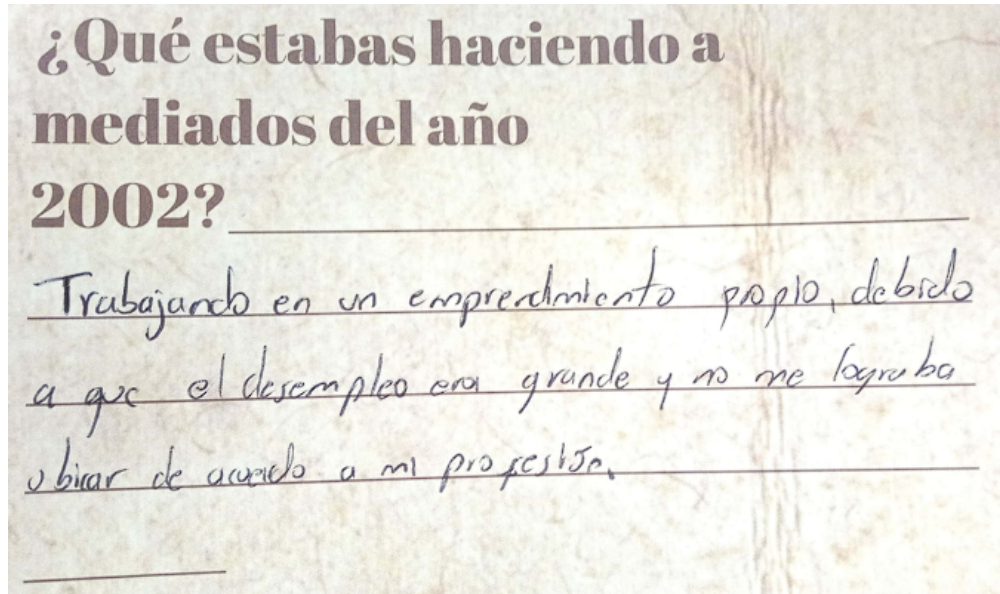 ¿Qué estabas haciendo a
mediados del año
2002?
Trabajando en un emprendimiento propio, debido
a que el desempleo era grande y no me lograba
ubicar de acuerdo a mi profesión.